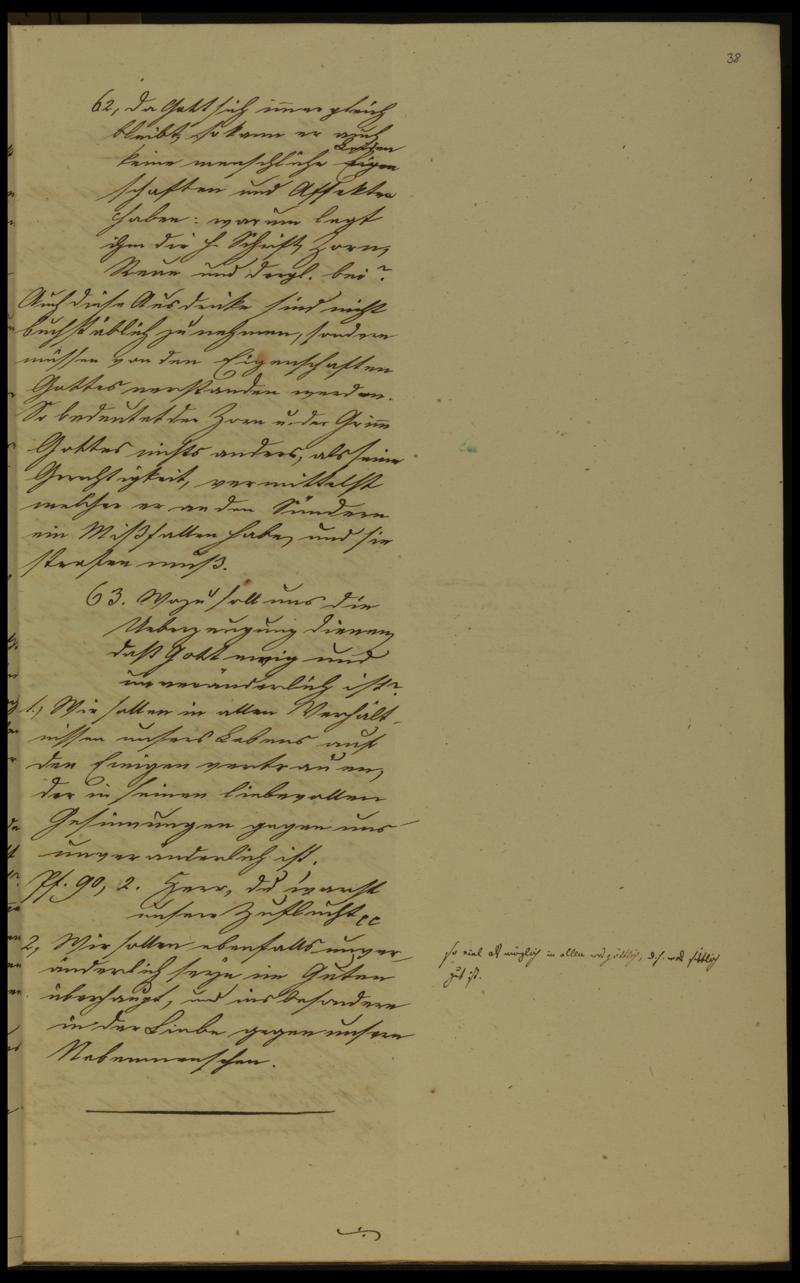 38
62, Da Gott sich immer gleich
bleibt, so kann er auch
keine menschliche Eigen
schaften und Affekten
haben: warum legt
ihm die h. Schrift Zorn,
Reue und dergl. bei?
Auch diese Ausdrücke sind nicht
buchstäblich zu nehmen, sondern
müssen von den Eigenschaften
Gottes verstanden werden.
So bedeutet der Zorn u. der Grimm
Gottes nichts anders, als seine
Gerechtigkeit, vermittelst
welcher er an den Sündern
ein Mißfallen habe, und sie
strafen muß.
63. Wozu soll uns die
Ueberzeugung dienen,
daß Gott ewig und
unveränderlich ist?
1., Wir sollen in allen Verhält-
nissen unsers Lebens auf
den Einigen vertrauen,
der in seinen liebevollen
Gesinnungen gegen uns
unveränderlich ist.
Ps. 90, 2. Herr, du warst
unsere Zuflucht
2, Wir sollen ebenfalls unver-
änderlich seyn im Guten
überhaupt, und insbesondere
in der Liebe gegen unsere
Nebenmenschen.
so viel als möglich in allem was göttlich, d.h. was sittlich
gut ist.